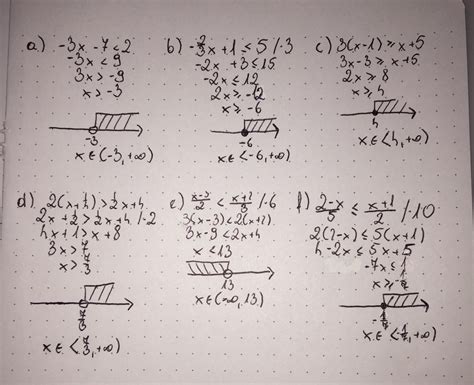 a) -3x -7 < 2
-3x < 9
3x > -9
x > -3
-3
x ∈ (-3, +∞)
b) -2/3x + 1 ≤ 5 /·3
-2x + 3 ≤ 15
-2x ≤ 12
2x ≥ -12
x ≥ -6
-6
x ∈ <-6, +∞)
c) 3(x-1) ≥ x+5
3x-3 ≥ x+5
2x ≥ 8
x ≥ 4
4
x ∈ <4, +∞)
d) 2(x+1/4) > 1/2x+4
2x + 1/2 > 1/2x+4 /·2
4x+1 > x+8
3x > 7
x > 7/3
7/3
x ∈ <7/3, +∞)
e) x-3/2 < x+2/3 /·6
3(x-3) < 2(x+2)
3x-9 < 2x+4
x < 13
13
x ∈ (-∞, 13)
f) 2-x/5 ≤ x+1/2 /·10
2(2-x) ≤ 5(x+1)
4-2x ≤ 5x+5
-7x ≤ 1
x ≥ -1/7
-1/7
x ∈ <-1/7, +∞)